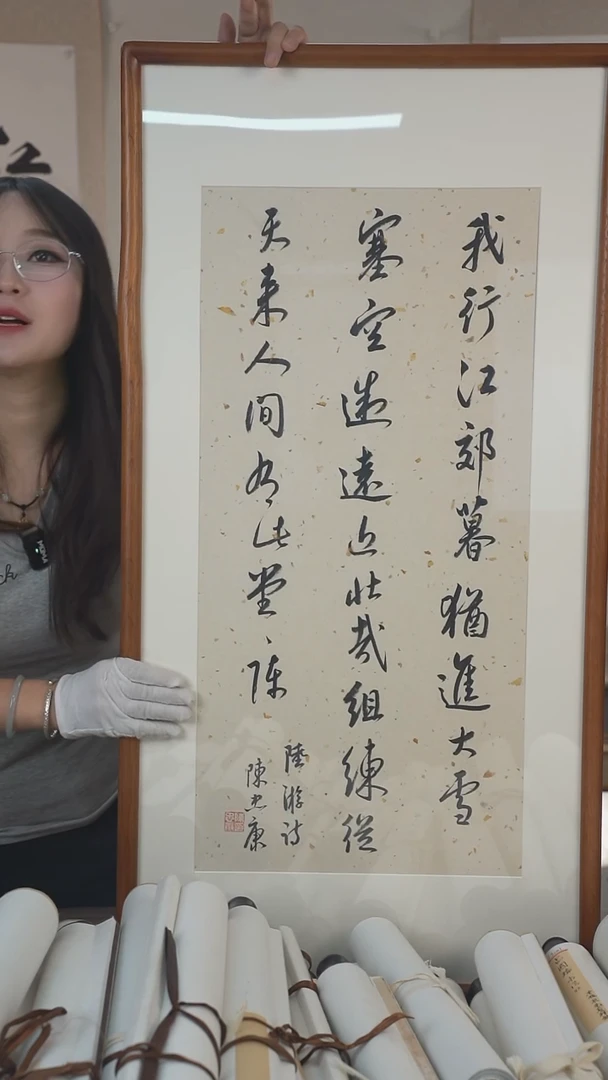 我行江郊暮猶進大雪
塞空迷遠近壯哉組練從
天來人間有此堂々陣
陸游詩
陳忠康